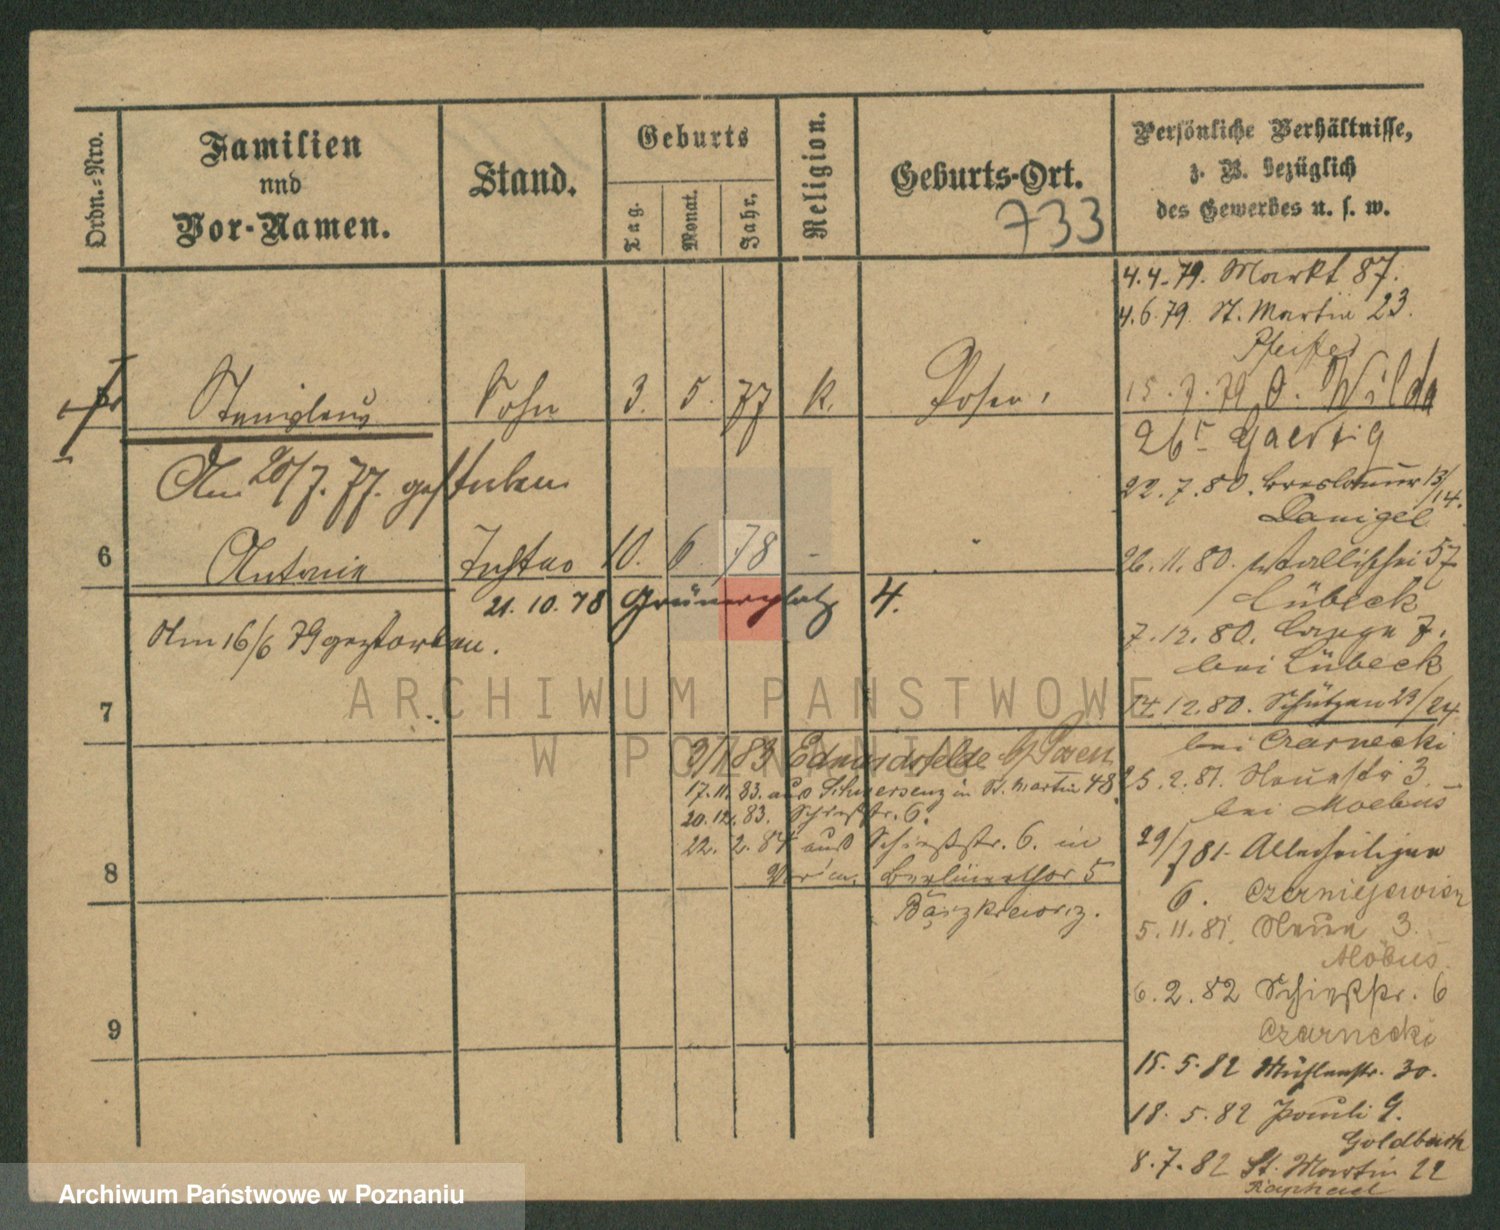 Ordn.-Nro.
Familien
und
Vor-Namen.
Stand.
Geburts
Tag.
Monat.
Jahr.
Religion.
Geburts-Ort.
733
Persönliche Verhältnisse,
z. B. bezüglich
des Gewerbes u. s. w.
4.4.79. Markt 87.
4.6.79. St. Martin 23.
Pfeifer
Stanislaus Sohn 3. 5. 77 k. Posen.
15.7.79 O. Wilda
26 Gaertig
Am 20/7. 77. gestorben
22.7.80. Breslauer 13/14.
Danigel
6 Antonie Tochter 10. 6. 78 -
26.11.80. Wallischei 57
Lübeck
21.10.78 Grünerplatz 4.
Am 16/6 79 gestorben.
7.12.80. Lange 7.
bei Lübeck
7
14.12.80. Schützen 23/24
bei Czarnecki
3/1 83 Edmundsfelde b/ Posen
17.11.83. aus Schwersenz in St. Martin 48.
20.12.83. Schießstr. 6.
22.2.84 aus Schießstr. 6. in
Berlinerthor 5
25.2.81. Neuestr 3.
bei Moebus
29/7 81. Allerheiligen
6. Czerniejewicz
8
5.11.81. Neue 3.
Möbus.
6.2.82 Schießstr. 6
Czarnecki
9
15.5.82 Mühlenstr. 30.
18.5.82 Pauli 9.
Goldbach
8.7.82 St. Martin 22
Raphael
ARCHIWUM PAŃSTWOWE
W POZNANIU
Archiwum Państwowe w Poznaniu